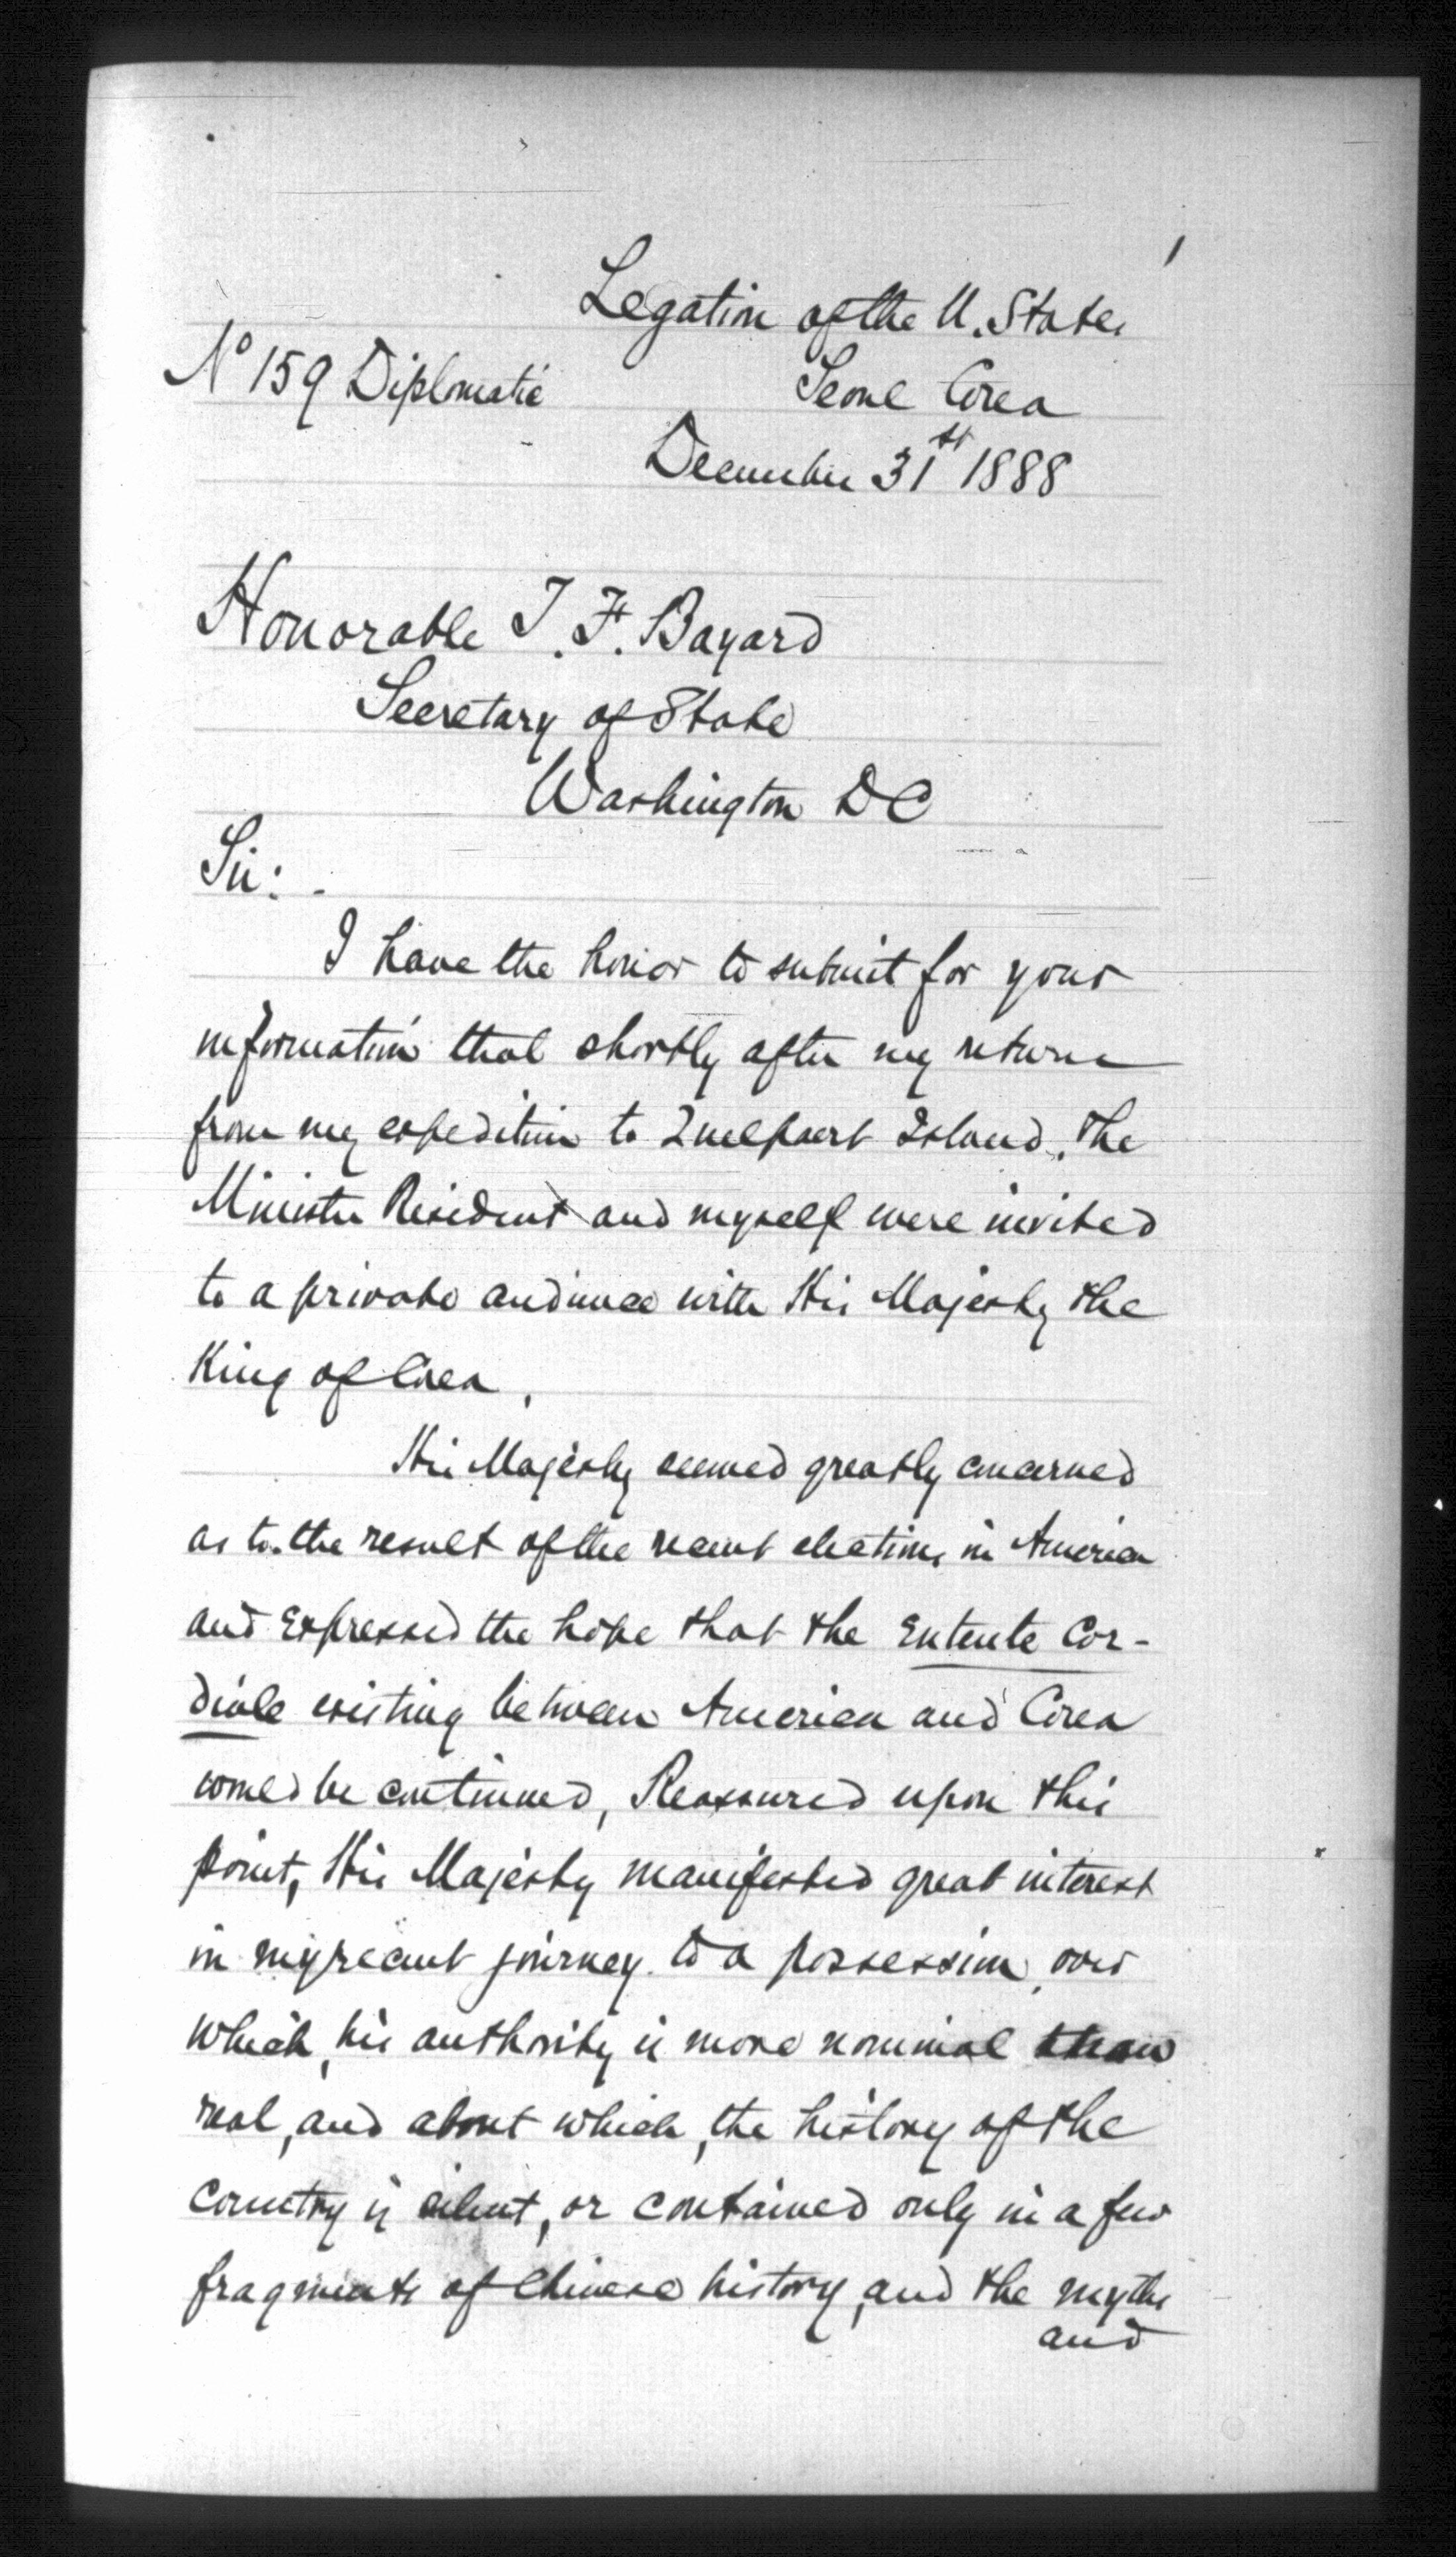 1
Legation of the U. States
Nº 159 Diplomatic
Seoul Corea
December 31st 1888
Honorable T. F. Bayard
Secretary of State
Washington DC
Sir: -
I have the honor to submit for your
information that shortly after my return
from my expedition to Quelpaert Island, the
Minister Resident and myself were invited
to a private audience with His Majesty the
King of Corea.
His Majesty seemed greatly concerned
as to the result of the recent elections in America
and expressed the hope that the Entente Cor-
diale existing between America and Corea
would be continued, Reassured upon this
point, His Majesty manifested great interest
in my recent journey to a possession, over
which, his authority is more nominal than
real, and about which, the history of the
Country is silent, or contained only in a few
fragments of Chinese history, and the myths
and